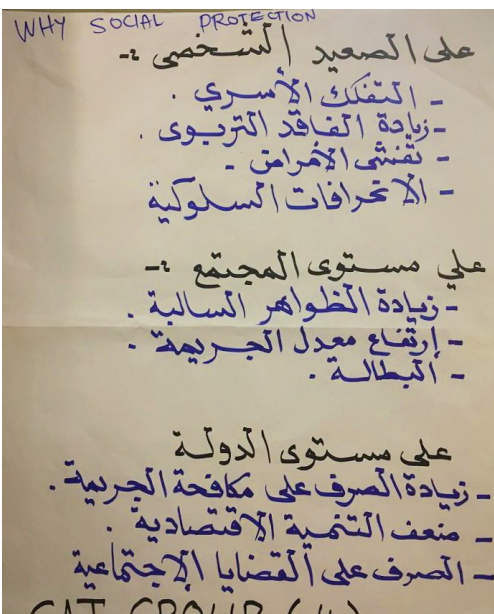 WHY SOCIAL PROTECTION
على الصعيد الشخصى :-
- التفكك الأسري .
- زيادة الفاقد التربوى .
- تفشى الأمراض -
- الانحرافات السلوكية
على مستوى المجتمع :-
- زيادة الظواهر السالبة .
- إرتفاع معدل الجريمة .
- البطالة .
على مستوى الدولة
- زيادة الصرف على مكافحة الجريمة .
- ضعف التنمية الاقتصادية .
- الصرف على القضايا الإجتماعية
CAT GROUP